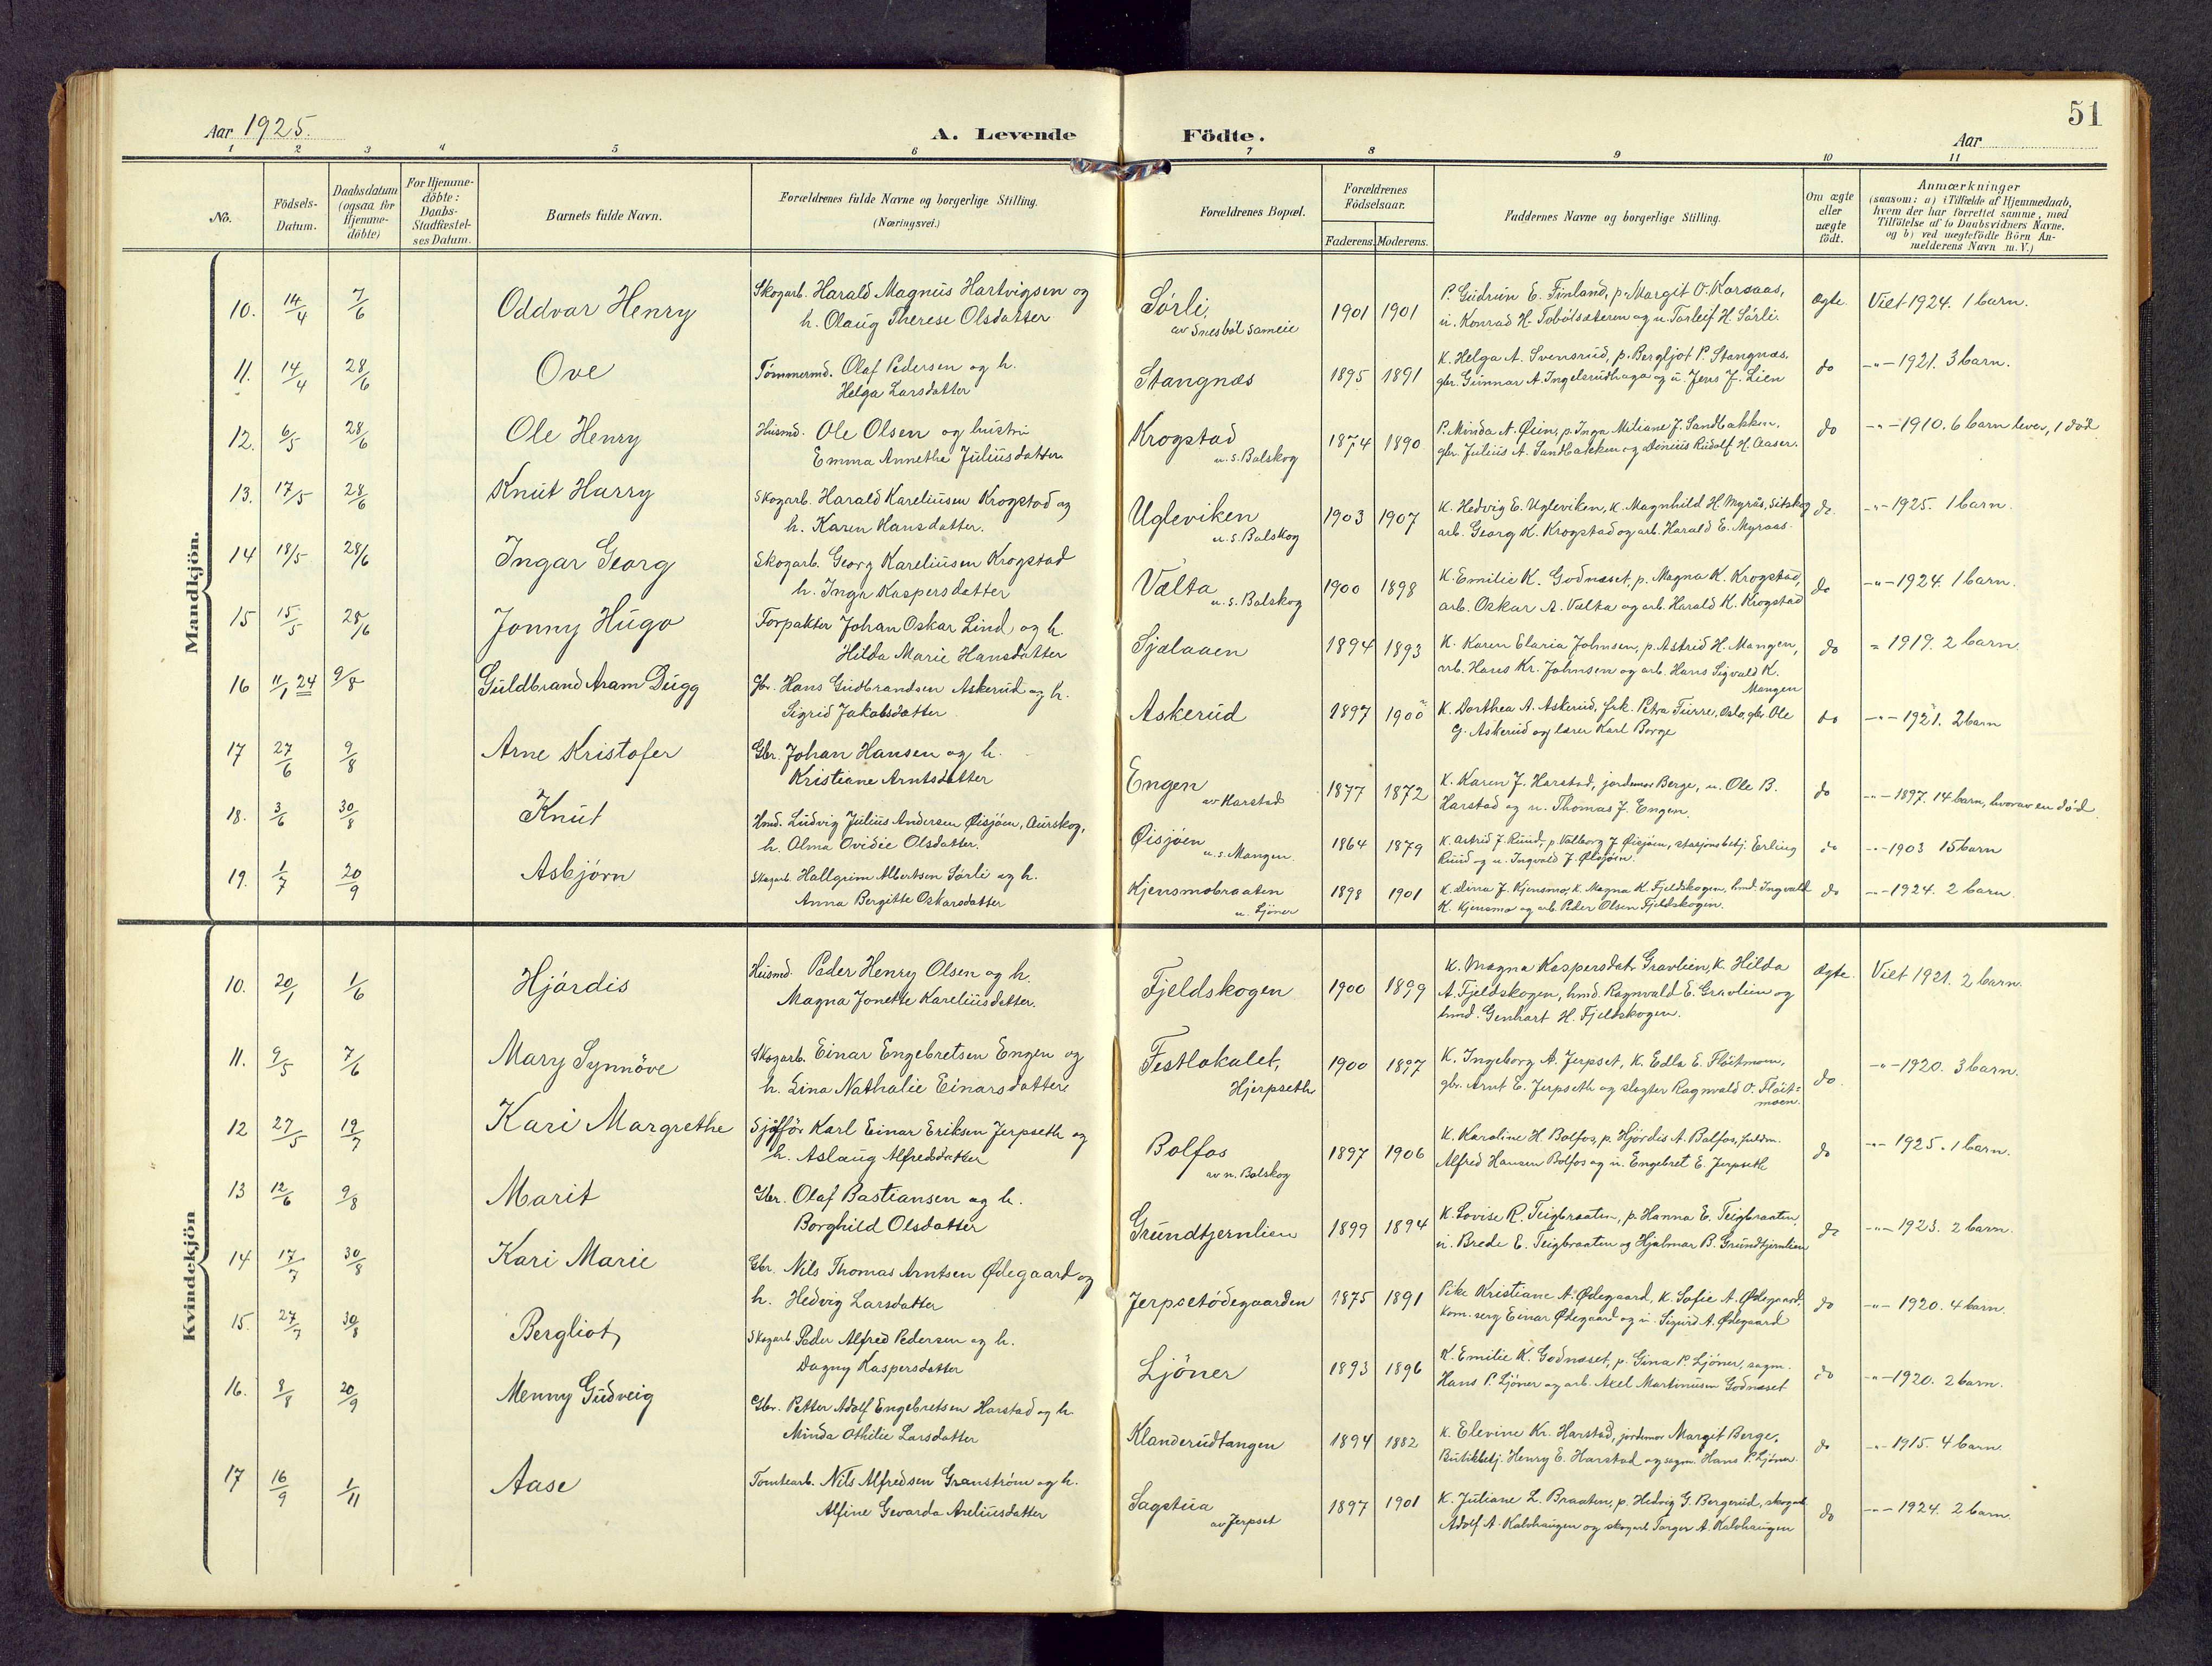 51
Aar 1925.
A. Levende Födte.
Aar
1 2 3 4 5 6 7 8 9 10 11
No.
Födsels-Datum.
Daabsdatum (ogsaa for Hjemme-döbte)
For Hjemme-döbte: Daabs-Stadfæstel-ses Datum.
Barnets fulde Navn.
Forældrenes fulde Navne og borgerlige Stilling.
(Næringsvei.)
Forældrenes Bopæl.
Forældrenes Födselsaar.
Faderens. Moderens.
Faddernes Navne og borgerlige Stilling.
Om ægte eller uægte födt.
Anmærkninger
(saasom: a) i Tilfælde af Hjemmedaab,
hvem der har forrettet samme, med
Tilföielse af to Daabsvidners Navne.
og b) ved uægtefödte Börn An-
melderens Navn m. V.)
Mandkjön.
10. 14/4 7/6 Oddvar Henry Skogarb. Harald Magnus Hartvigsen og
h. Olaug Therese Olsdatter
Sörli,
av Snesböl sameie
1901 1901
P. Gudrun E. Finland, p. Margit O. Korsaas,
u. Konrad H. Tobölsæteren og u. Torleif H. Sörli.
Ægte Viet 1924. 1 barn.
11. 14/4 28/6 Ove Tömmermd. Olaf Pedersen og h.
Helga Larsdatter
Stangnæs 1895 1891
K. Helga A. Svensrud, p. Bergljot P. Stangnæs,
gbr. Gunnar A. Ingelsrudhaga og u. Jens J. Lien
do -"- 1921. 3 barn.
12. 6/5 28/6 Ole Henry Husmd. Ole Olsen og hustru
Emma Annethe Juliusdatter
Krogstad
u. s. Bolskog
1874 1890
P. Minda N. Øien, p. Inga Miliane J. Sandbakken,
gbr. Julius A. Sandbakken og Dinius Rudolf H. Aaser.
do -"- 1910. 6 barn lever, 1 död
13. 17/5 28/6 Knut Harry Skogarb. Harald Kareliusen Krogstad og
h. Karen Hansdatter.
Ugleviken
u. s. Bolskog
1903 1907
K. Hedvig E. Ugleviken, K. Magnhild H. Myrås, Sitskog
arb. Georg K. Krogstad og arb. Harald E. Myraas.
do. -"- 1925. 1 barn.
14 18/5 28/6 Ingar Georg Skogarb. Georg Kareliusen Krogstad
h. Inga Kaspersdatter
Vælta
u. s. Bolskog
1900 1898
K. Emilie K. Godnæset, p. Magna K. Krogstad,
arb. Oskar A. Vælta og arb. Harald K. Krogstad
do -"- 1924. 1 barn.
15 15/5 28/6 Jonny Hugo Forpakter Johan Oskar Lind og h.
Hilda Marie Hansdatter
Sjølaaen 1894 1893
K. Karen Elaria Johnsen, p. Astrid H. Mangen,
arb. Hans Kr. Johnsen og arb. Hans Sigvald K.
Mangen
do " 1919. 2 barn.
16 11/1 24 9/8 Guldbrand Aram Dugg Gbr. Hans Gudbrandsen Askerud og h.
Sigrid Jakobsdatter
Askerud 1897 1900
K. Dorthea A. Askerud, frk. Petra Turre, Oslo, gbr. Ole
G. Askerud og lærer Karl Borge
do -"- 1921. 2 barn
17 27/6 9/8 Arne Kristofer Gbr. Johan Hansen og h.
Kristiane Arntsdatter
Engen
av Harstad
1877 1872
K. Karen J. Harstad, jordemor Berge, u. Ole B.
Harstad og u. Thomas J. Engen.
do -"- 1897. 14 barn, hvorav en död.
18. 3/6 30/8 Knut Hmd. Ludvig Julius Andersen Øisjöen, Aurskog,
h. Olma Ovidie Olsdatter.
Øisjöen
u. s. Mangen.
1864 1879
K. Astrid J. Ruud, p. Valborg J. Øisjöen, stasjonsbetj. Erling
Ruud og u. Ingvald J. Øisjöen.
do -"- 1903 15 barn
19. 1/7 20/9 Asbjörn Skogarb. Hallgrim Albertsen Sörli og h.
Anna Bergitte Oskarsdatter
Kjensmobraaten
u. Ljöner
1898 1901
K. Dina J. Kjensmo, K. Magna K. Fjeldskogen, hmd. Ingvald
K. Kjensmo og arb. Peder Olsen Fjeldskogen.
do -"- 1924. 2 barn.
Kvindekjön
10. 20/1 1/6 Hjördis Husmd. Peder Henry Olsen og h.
Magna Jonette Kareliusdatter.
Fjeldskogen 1900 1899
K. Magna Kaspersdatr Gravlien, K. Hilda
A. Fjeldskogen, hmd. Ragnvald E. Gravlien og
hmd. Genhart H. Fjeldskogen.
Ægte. Viet 1921. 2 barn.
11. 9/5 7/6 Mary Synnöve Skogarb. Einar Engebretsen Engen og
h. Lina Nathalie Einarsdatter
Festlokalet,
Hjerpseth
1900 1897
K. Ingeborg A. Jerpset, K. Edla E. Flöitmoen,
gbr. Arnt E. Jerpseth og slagter Ragnvald O. Flöit=
moen.
do. -"- 1920. 3 barn.
12 27/5 19/7 Kari Margrethe Sjåfför Karl Einar Eriksen Jerpseth og
h. Aslaug Alfredsdatter
Bolfos
av n. Bolskog
1897 1906
K. Karoline H. Bolfos, p. Hjördis A. Bolfos, fuldm.
Alfred Hansen Bolfos og u. Engebret E. Jerpseth
do -"- 1925. 1 barn.
13 12/6 9/8 Marit Gbr. Olaf Bastiansen og h.
Borghild Olsdatter
Grundtjernlien 1899 1894
K. Lovise R. Teigbraaten, p. Hanna E. Teigbraaten,
u. Brede E. Teigbraaten og Hjalmar B. Grundtjernlien
do -"- 1923. 2 barn.
14 17/7 30/8 Kari Marie Gbr. Nils Thomas Arntsen Ødegaard og
h. Hedvig Larsdatter
Jerpsetödegaarden 1875 1891
Pike Kristiane A. Ødegaard, K. Sofie A. Ødegaard,
Kom. serg Einar Ødegaard og u. Sigurd A. Ødegaard
do -"- 1920. 4 barn.
15. 27/7 30/8 Bergliot, Skogarb Peder Alfred Pedersen og h.
Dagny Kaspersdatter
Ljöner 1893 1896
K. Emilie K. Godnæset, p. Gina P. Ljöner, sagm.
Hans P. Ljöner og arb. Axel Martinusen Godnæset
do -"- 1920. 2 barn.
16. 8/8 20/9 Menny Gudveig Gbr. Petter Adolf Engebretsen Harstad og h.
Minda Othilie Larsdatter
Klanderudtangen 1894 1882
K. Elevine Kr. Harstad, jordemor Margit Berge,
Butikbetj. Henry E. Harstad og sagm. Hans P. Ljöner.
do -"- 1915. 4 barn.
17 16/9 1/11 Aase Tomtearb. Nils Alfredsen Granström og h.
Alfine Gevarda Areliusdatter
Sagstua
av Jerpset
1897 1901
K. Juliane L. Braaten, p. Hedvig G. Bergerud, skogarb
Adolf A. Kalvhaugen og skogarb Torger A. Kalvhaugen
do -"- 1924. 2 barn.